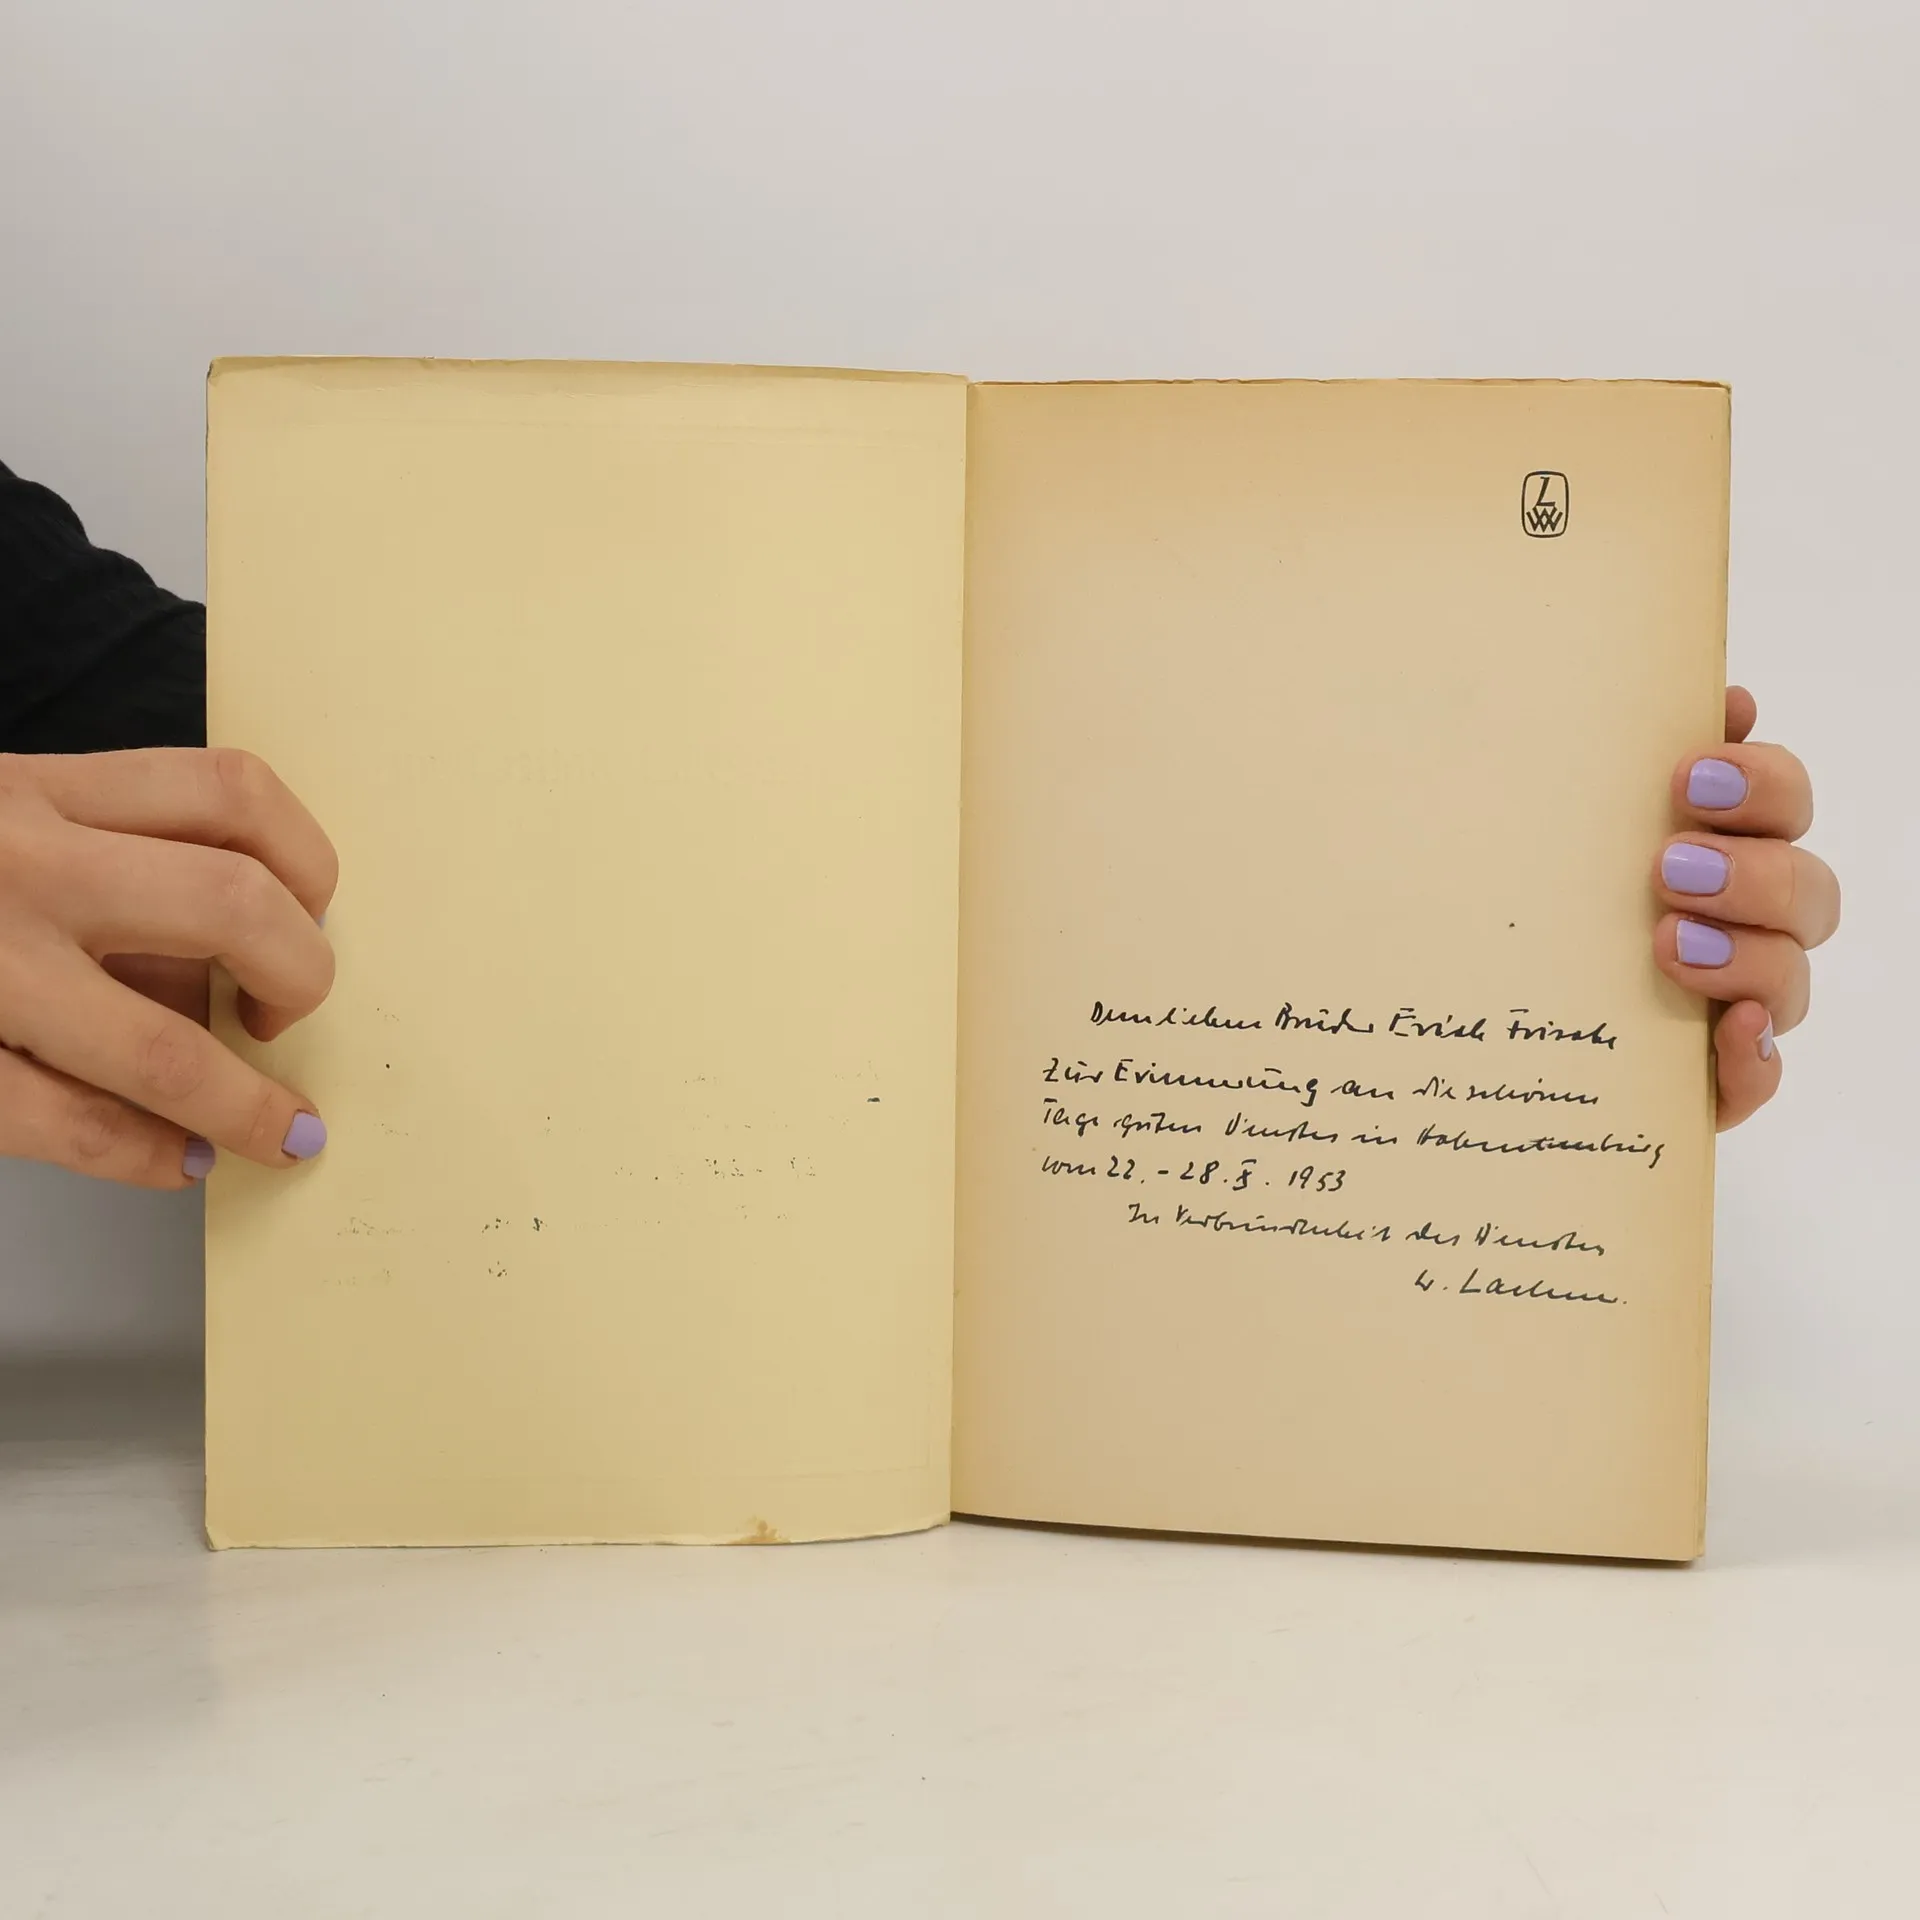 L
W
Dem lieben Bruder Erich Frische
Zur Erinnerung an die schönen
Tage guten Dienstes in
vom 22. - 28. X. 1953
In Verbundenheit des Dienstes
W.